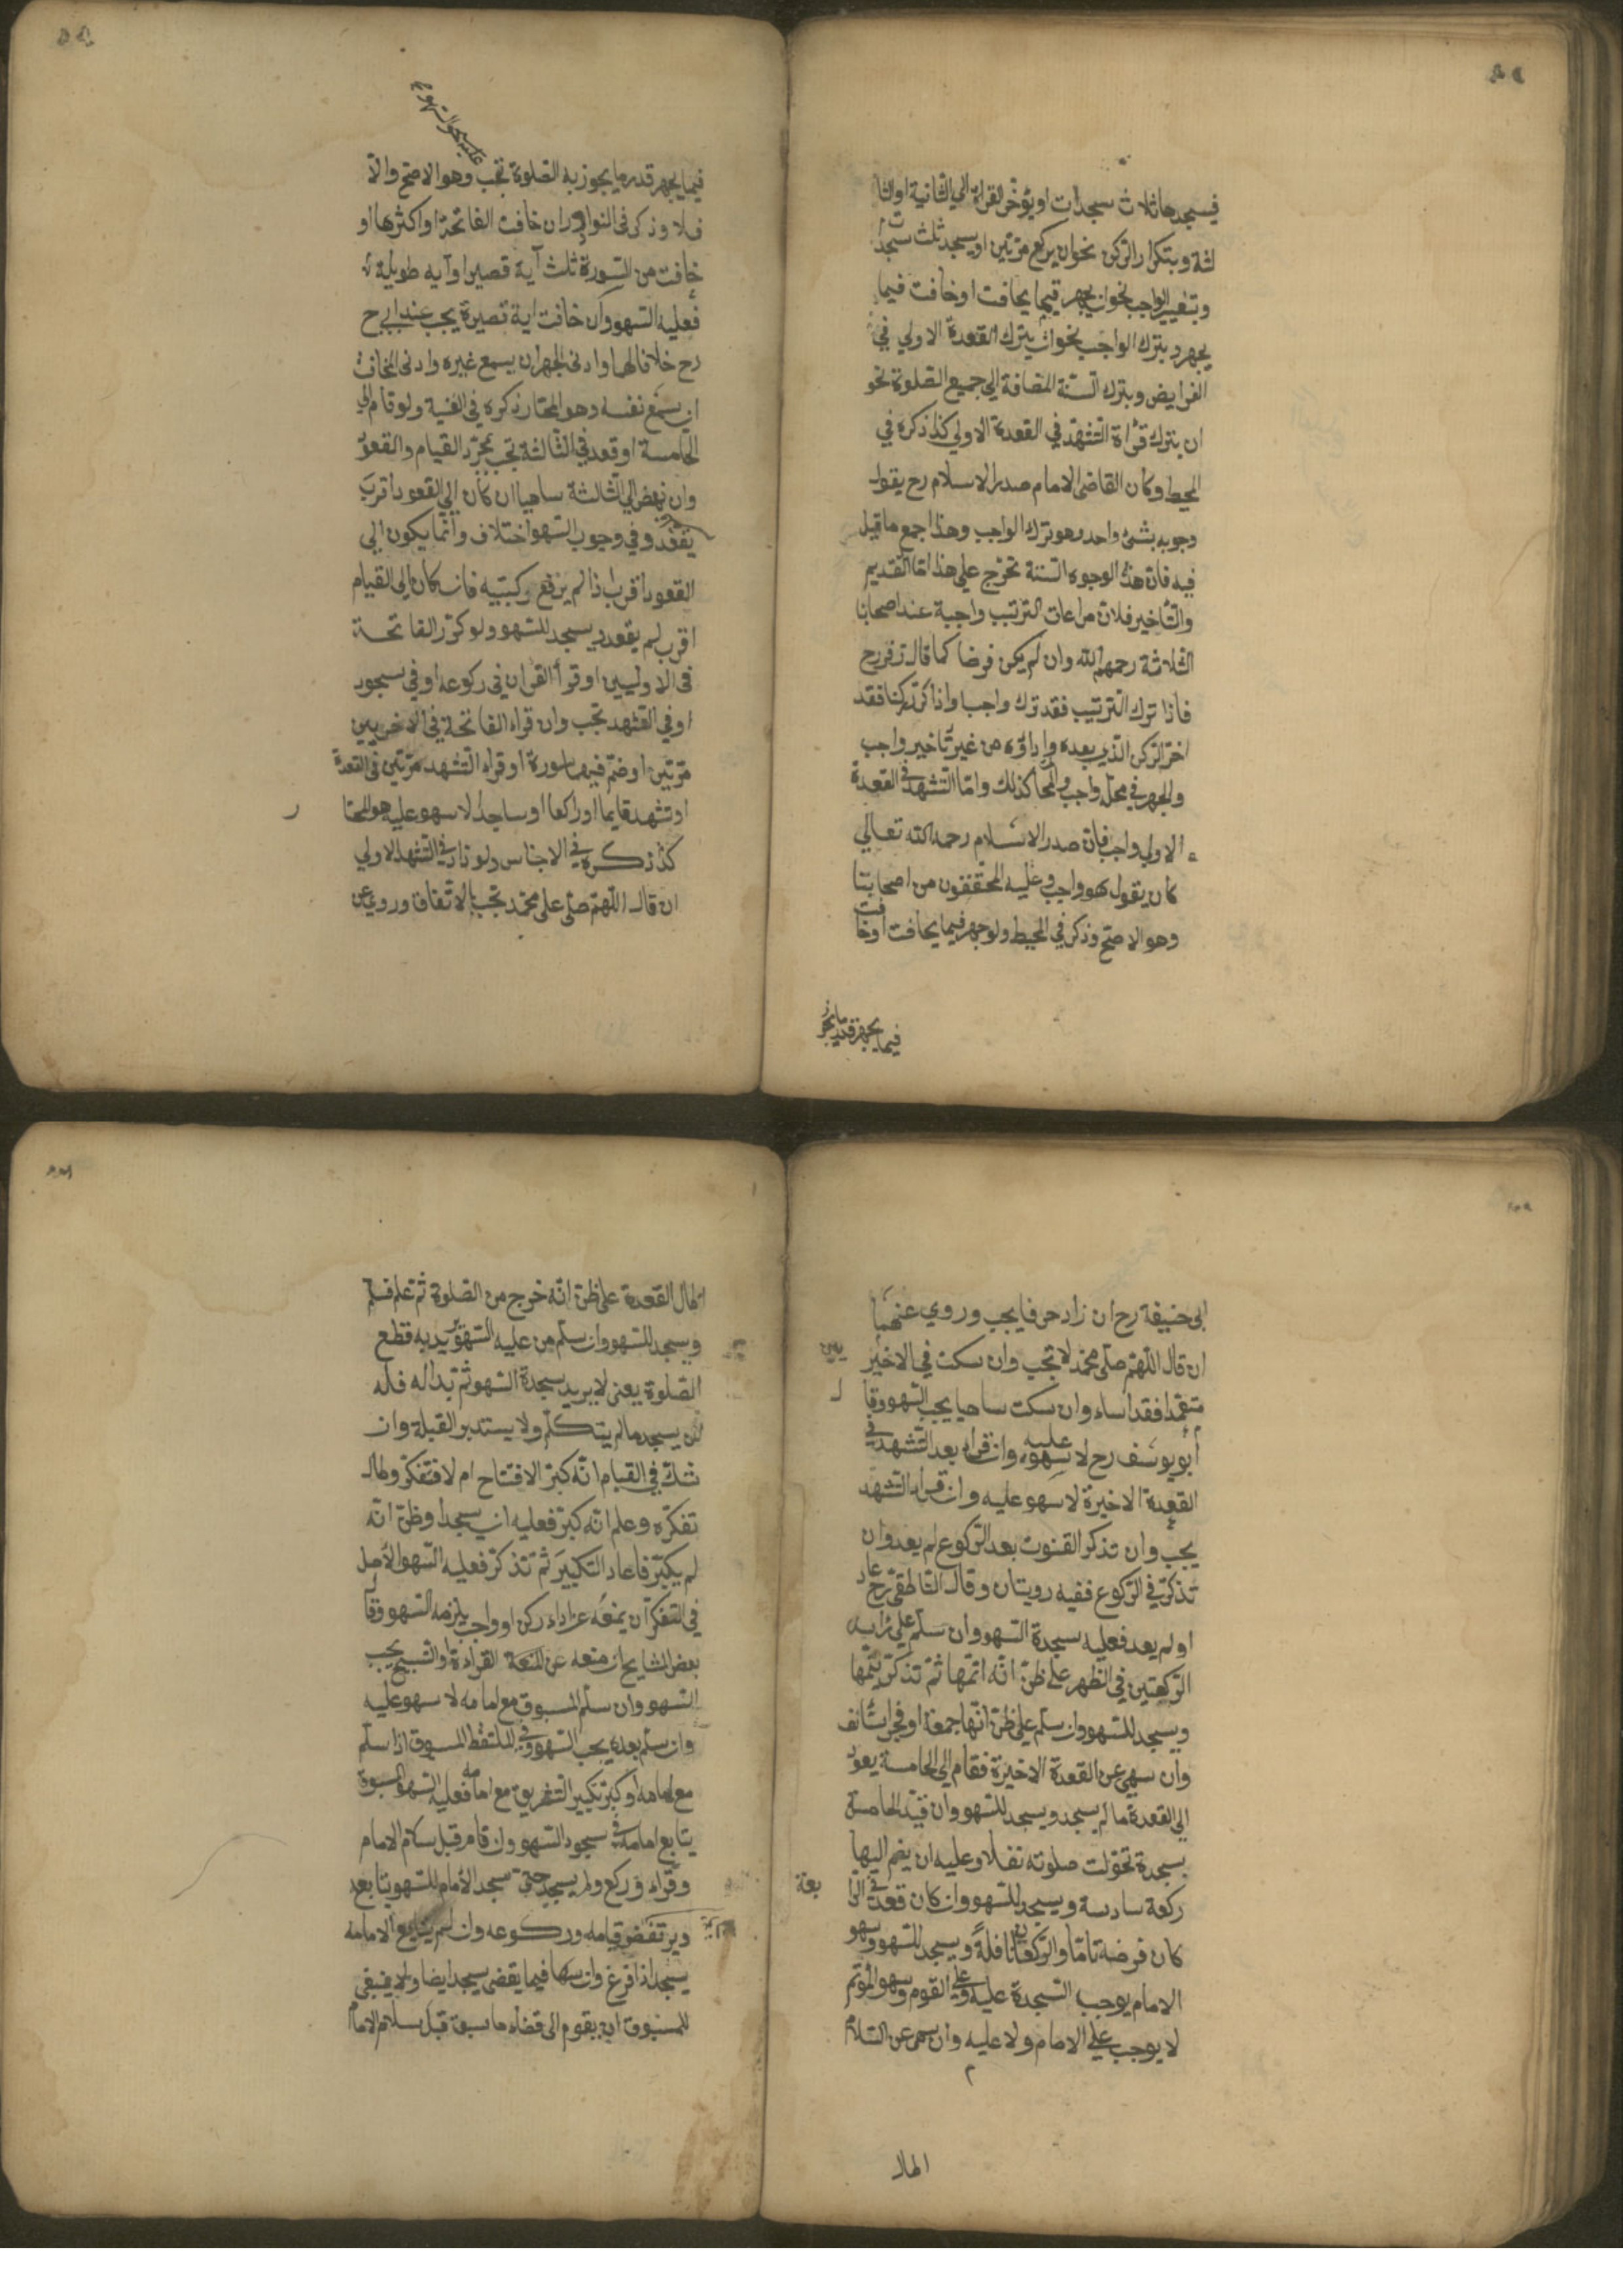 فيسجدها ثلاث سجدات او يؤخر القراة الي الثانية او الثا
لثة وبتكرار الركن نحو ان يركع مرتين او يسجد ثلث سجدات
وبتغيير الواجب نحو ان يجهر فيما يخافت او خافت فيما
يجهر وبترك الواجب نحو ان يترك القعدة الاولي في
الفرايض وبترك السنة المضافة الي جميع الصلوة نحو
ان يترك قراة التشهد في القعدة الاولي كذا ذكره في
المحيط وكان القاضي الامام صدر الاسلام رح يقول
وجوبه بشئ واحد وهو ترك الواجب وهذا اجمع ما قيل
فيه فان هذه الوجوه الستة تخرج علي هذا اما التقديم
والتأخير فلان مراعات الترتيب واجبة عند اصحابنا
الثلاثة رحمهم الله وان لم يكن فرضا كما قال زفر رح
فاذا ترك الترتيب فقد ترك واجبا واذا كرر ركنا فقد
اخر الركن الذي بعده واداؤه من غير تأخير واجب
والجهر في محله واجب والمخا كذلك واما التشهد في القعدة
الاولي واجب فان صدر الاسلام رحمه الله تعالي
كان يقول هو واجب وعليه المحققون من اصحابنا
وهو الاصح وذكر في المحيط ولو جهر فيما يخافت او خافت
فيما يجهر قدر ما يجوز
عليه سجود السهو
فيما يجهر قدر ما يجوز به الصلوة تجب وهو الاصح والا
فلا وذكر في النوادر ان خافت الفاتحة او اكثرها او
خافت من السورة ثلث آية قصيرا او آيه طويلة
فعليه السهو وان خافت اية قصيرة يجب عند ابي ح
رح خلافا لهما وادنى الجهر ان يسمع غيره وادنى المخافت
ان يسمع نفسه وهو المختار ذكره في الغنية ولو قام الي
الخامسة او قعد في الثالثة تجب بمجرد القيام والقعود
وان نهض الي الثالثة ساهيا ان كان الي القعود اقرب
يقعد وفي وجوب السهو اختلاف وانما يكون الي
القعود اقرب اذا لم يرفع ركبتيه فان كان الي القيام
اقرب لم يقعد ويسجد للسهو ولو كرر الفاتحة
في الاوليين او قرأ القران في ركوعه او في سجود
او في التشهد تجب وان قراء الفاتحة في الاخريين
مرتين او ضم فيهما سورة او قراء التشهد مرتين في القعدة
او تشهد قايما او راكعا او ساجدا لا سهو عليه هو المختا
ر
كذا ذكره في الاجناس ولو زاد في التشهد الاولي
ان قال اللهم صلي علي محمد تجب بالاتفاق وروي عن
ابي حنيفة رح ان زاد حرفا يجب وروي عنهما
ان قال اللهم صلي محمد لا تجب وان سكت في الاخير
يين
متعمدا فقد اساء وان سكت ساهيا يجب السهو وقا
ل
أبو يوسف رح لا سهو عليه وان قراء بعد التشهد في
القعدة الاخيرة لا سهو عليه وان قراء التشهد
يجب وان تذكر القنوت بعد الركوع لم يعد وان
تذكر في الركوع ففيه رويتان وقال الناطفي رح عاد
او لم يعد فعليه سجدة السهو وان سلم علي رأس
الركعتين في الظهر علي ظن انه اتمها ثم تذكر يتمها
ويسجد للسهو وان سلم علي ظن انها جمعة او فجر استأنف
وان سهي عن القعدة الاخيرة فقام الي الخامسة يعود
الي القعدة ما لم يسجد ويسجد للسهو وان قيد الخامسة
بسجدة تحولت صلوته نفلا وعليه ان يضم اليها
ركعة سادسة ويسجد للسهو وان كان قعد في الرا
بعة
كان فرضه تاما والركعتان نافلة ويسجد للسهو وسهو
الامام يوجب السجدة عليه وعلي القوم وسهو المؤتم
لا يوجب علي الامام ولا عليه وان سهى عن السلام
اطال
اطال القعدة على ظن انه خرج من الصلوة ثم علم فسلم
ويسجد للسهو وان سلم من عليه السهو يريد به قطع
الصلوة يعني لا يريد سجدة السهو ثم بدا له فله
ان يسجد ما لم يتكلم ولا يستدبر القبلة وان
شك في القيام انه كبر الافتتاح ام لا فتفكر وطال
تفكره وعلم انه كبر فعليه ان يسجد او ظن انه
لم يكبر فاعاد التكبير ثم تذكر فعليه السهو الاصل
في التفكر ان يمنعه عن اداء ركن او واجب يلزمه السهو وقا
ل
بعض المشايخ ان منعه عن القراءة والتسبيح يجب
السهو وان سلم المسبوق مع امامه لا سهو عليه
وان سلم بعده يجب السهو وفي الملتقط المسبوق اذا سلم
مع امامه او كبر تكبير التشريق مع امامه فعليه السهو المسبوق
يتابع امامه في سجود السهو وان قام قبل سلام الامام
وقراء وركع ولم يسجد حتى سجد الامام للسهو يتابعه
ويرتفض قيامه وركوعه وان لم يتابع الامامه
يسجد اذا فرغ وان سها فيما يقضي يسجد ايضا ولا ينبغي
للمسبوق ان يقوم الى قضاء ما سبق قبل سلام الامام